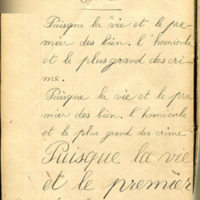 Puisque la vie et le pre-
mier des bien. l'homicide
et le plus grand des cri-
me.
Puisque la vie et le pre
mier des bien. l'homicide
et le plus grand des crime
Puisque la vie
et le premier